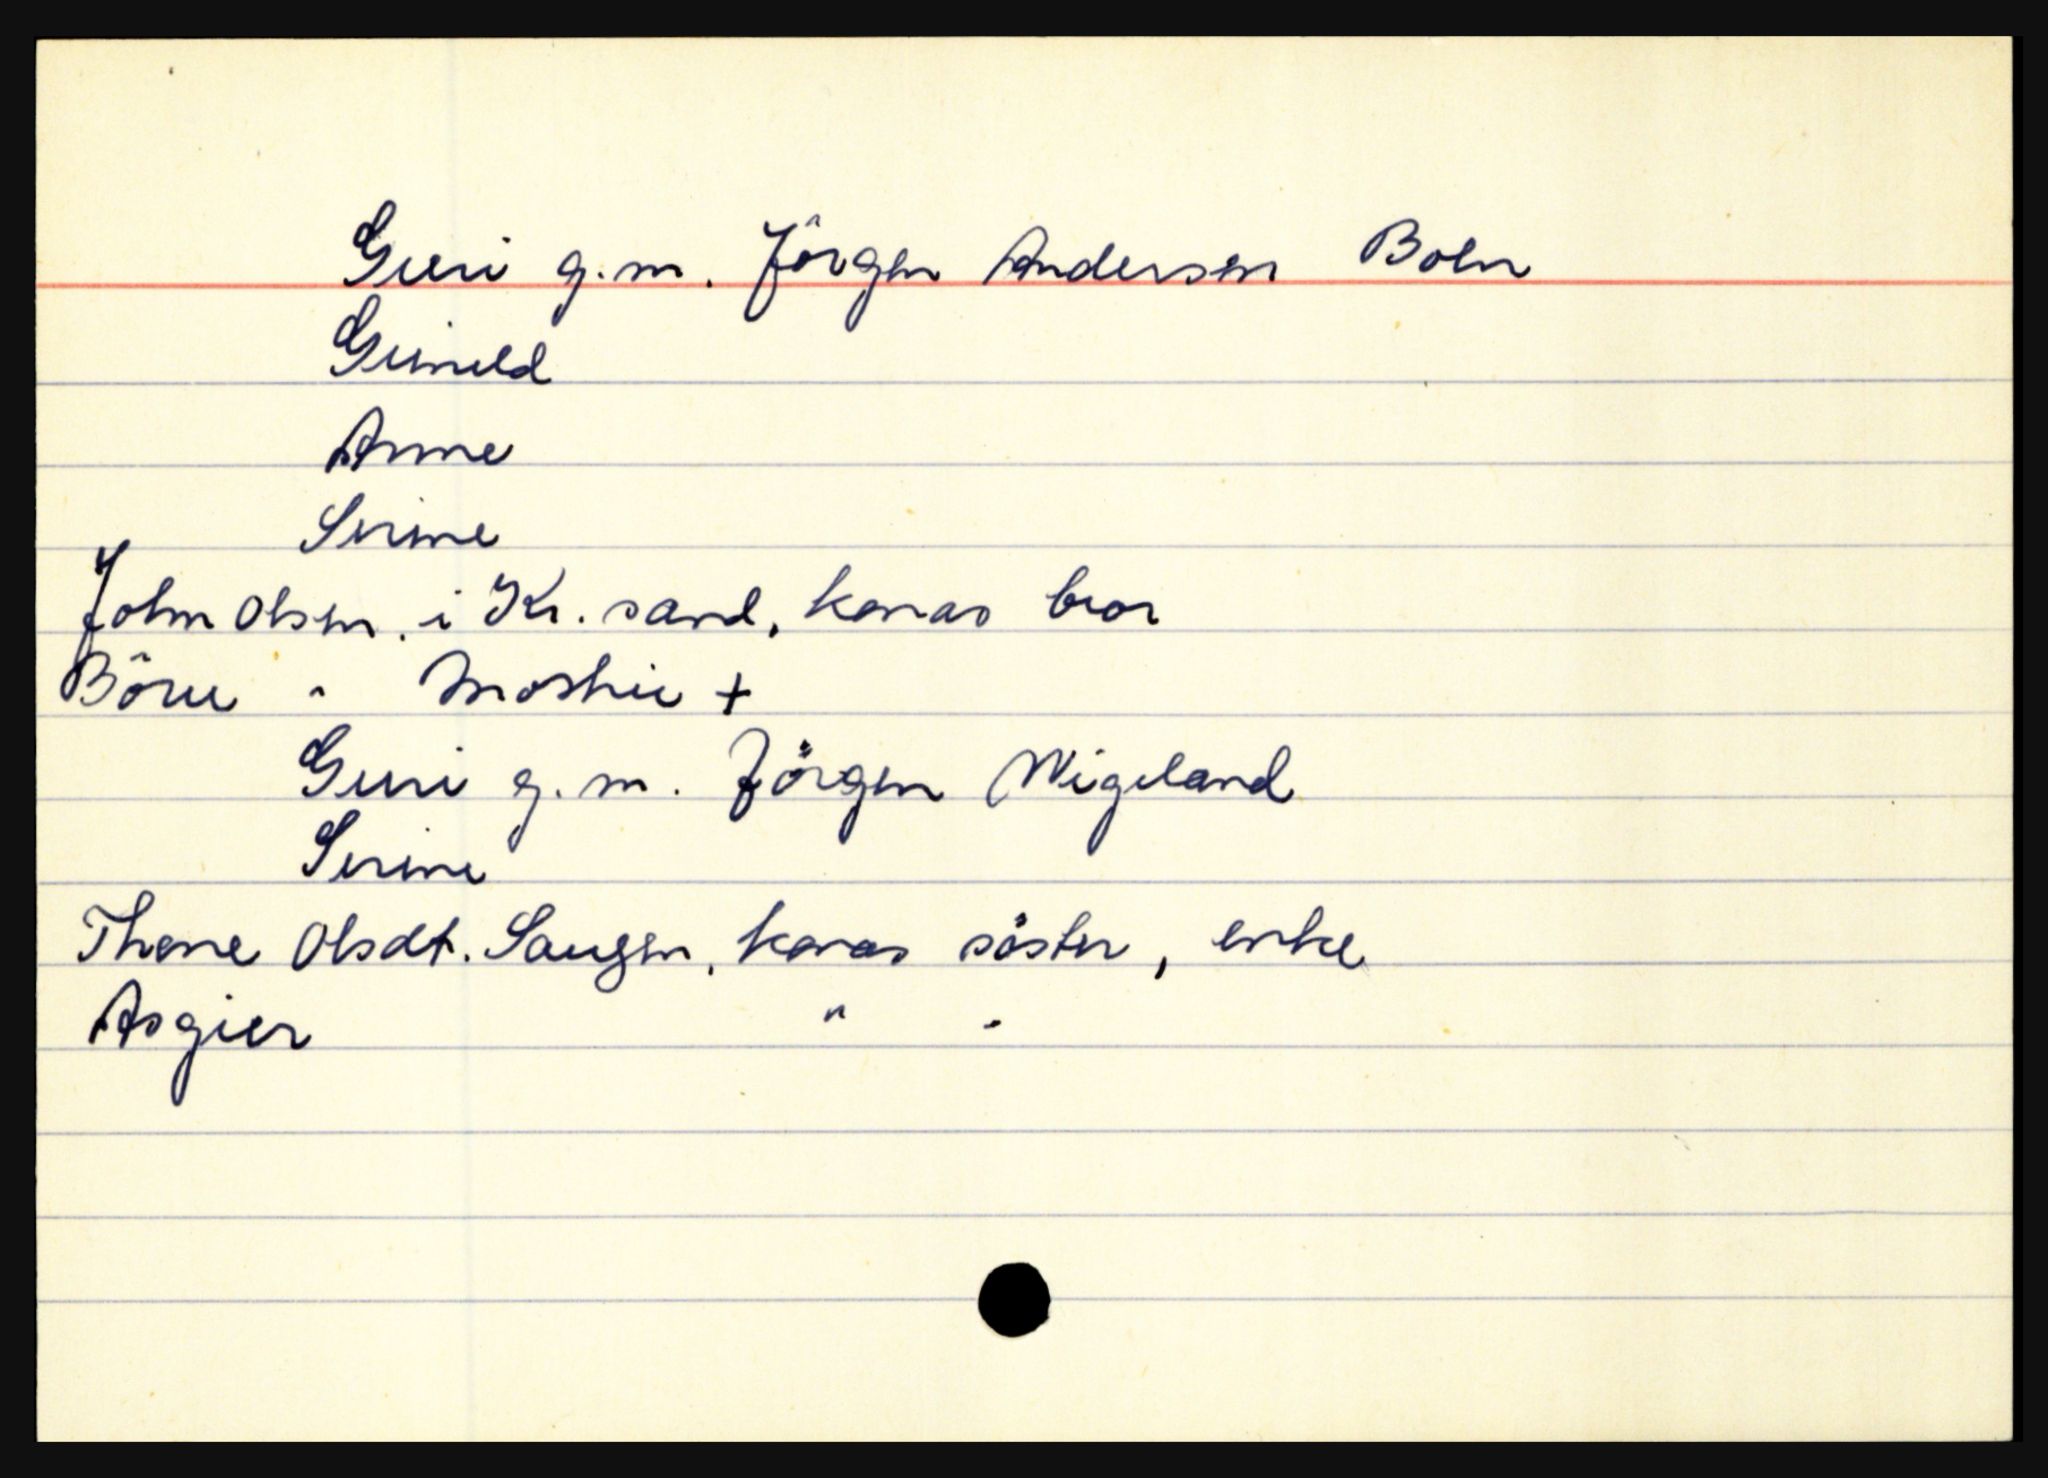 Guri g.m. Jörgen Andersen Boln
Gunild
Anne
Serine
John Olsen. i Kr.sand, konas bror
Böru " Moshei +
Guri g.m. Jörgen Wigeland
Serine
Thore Olsdt. Saugen, konas söster, enke
Asgier " "